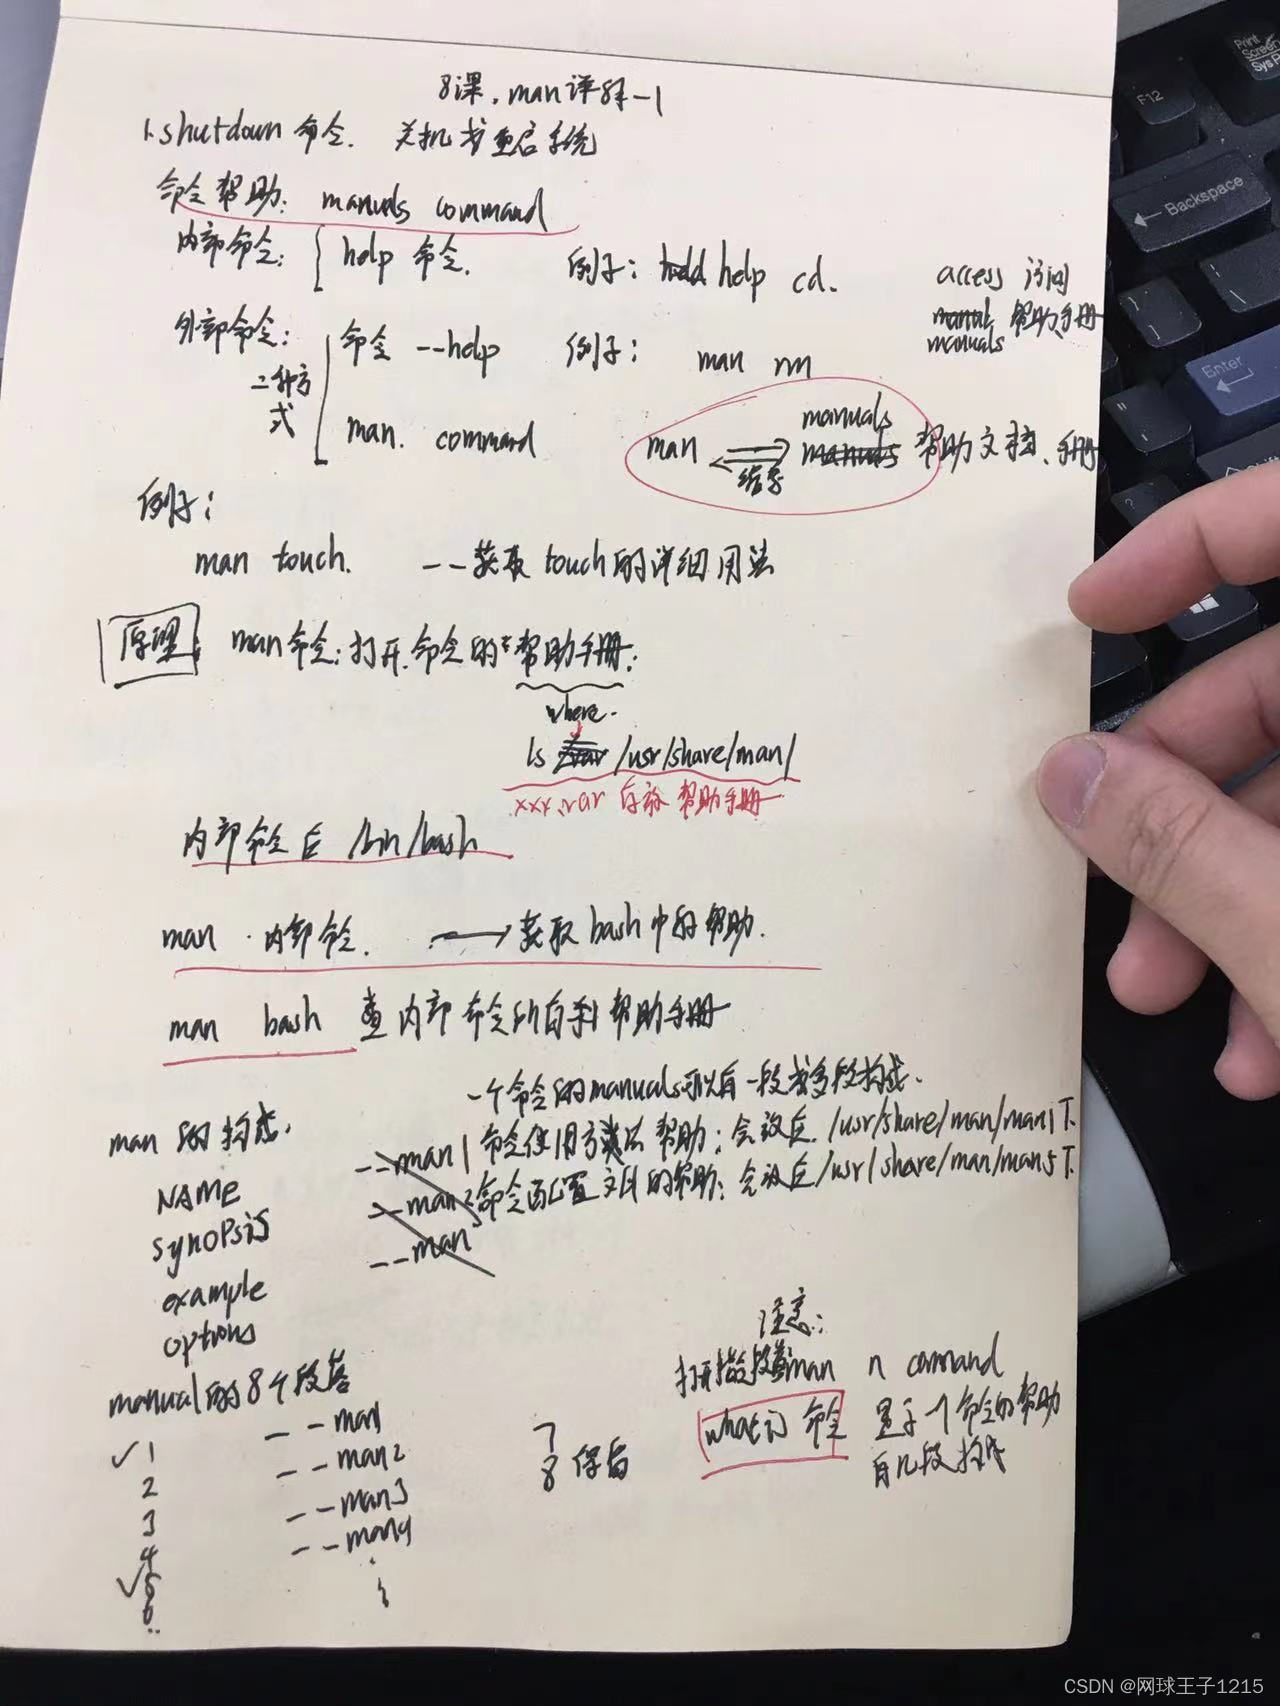 8课.man详解-1
1.shutdown 命令. 关机或重启系统
命令帮助: manuals command
内部命令: help 命令. 例子: help cd.
access 访问
manuals 帮助手册
外部命令: 命令 --help 例子: man rm
二种方式
man. command
man manuals 帮助文档、手册
例子:
man touch. --获取touch的详细用法
原理: man命令:打开命令的帮助手册:
where.
ls /usr/share/man/
xxx.rar 存放 帮助手册
内部命令在 /bin/bash
man 内部命令. → 获取bash中的帮助.
man bash 查内部命令所自带帮助手册
一个命令的manuals可以有一段或多段构成.
man 的构成.
--man1 命令使用方法帮助: 会放在 /usr/share/man/man1下.
NAME
--man 命令配置文件的帮助: 会放在/usr/share/man/man5下.
SYNOPSIS
--man
example
options
注意:
打开指定段落man n command
manual的8个段落
whatis 命令 显示一个命令的帮助
有几段构成
✓1 --man1
2 --man2
3 --man3
4 --man4
✓5
6
..
7
8 保留
F12
Print Screen
Backspace
Enter
CSDN @网球王子1215